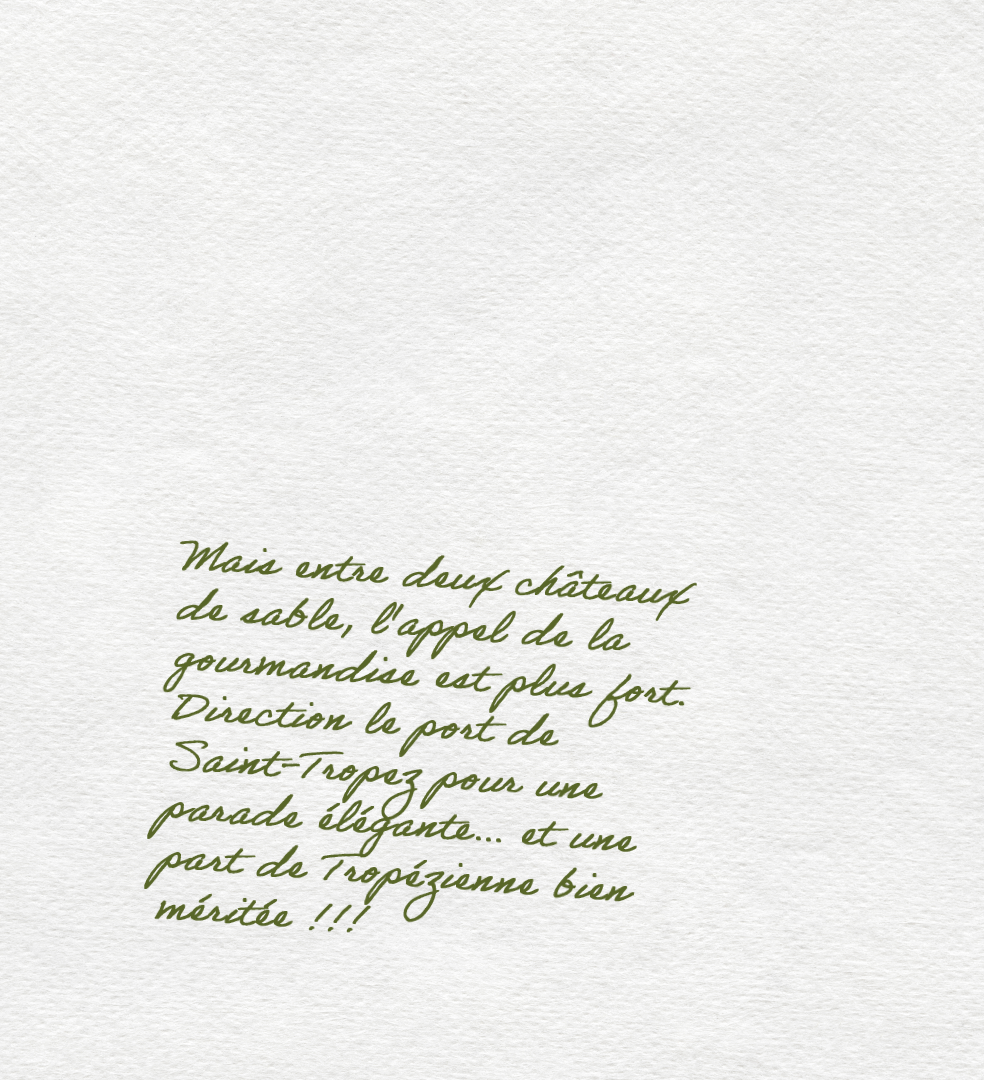 Mais entre deux châteaux
de sable, l'appel de la
gourmandise est plus fort.
Direction le port de
Saint-Tropez pour une
parade élégante... et une
part de Tropézienne bien
méritée !!!